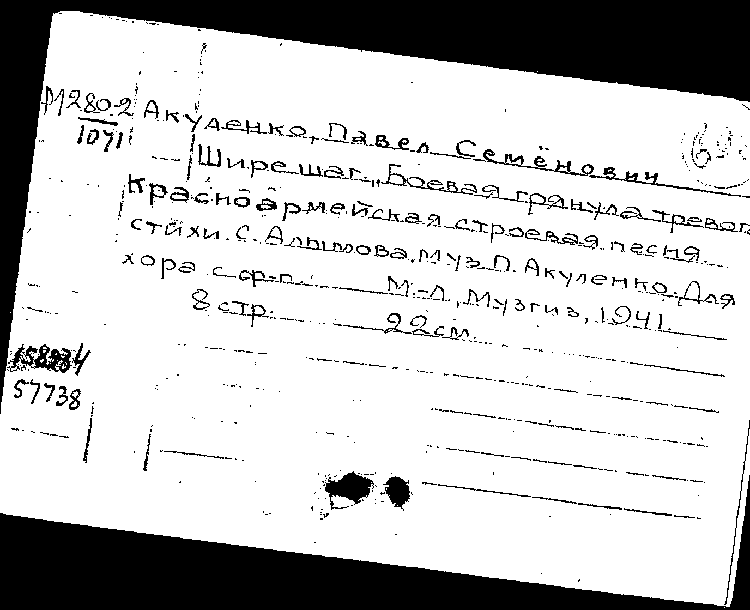 М280-2
1071
Акуленко, Павел Семёнович
Шире шаг. „Боевая грянула тревога
Красноармейская строевая песня.
стихи. С. Алымова. муз П. Акуленко. Для
хора с ф-п. М.-Л, Музгиз, 1941.
8 стр. 22см.
57738